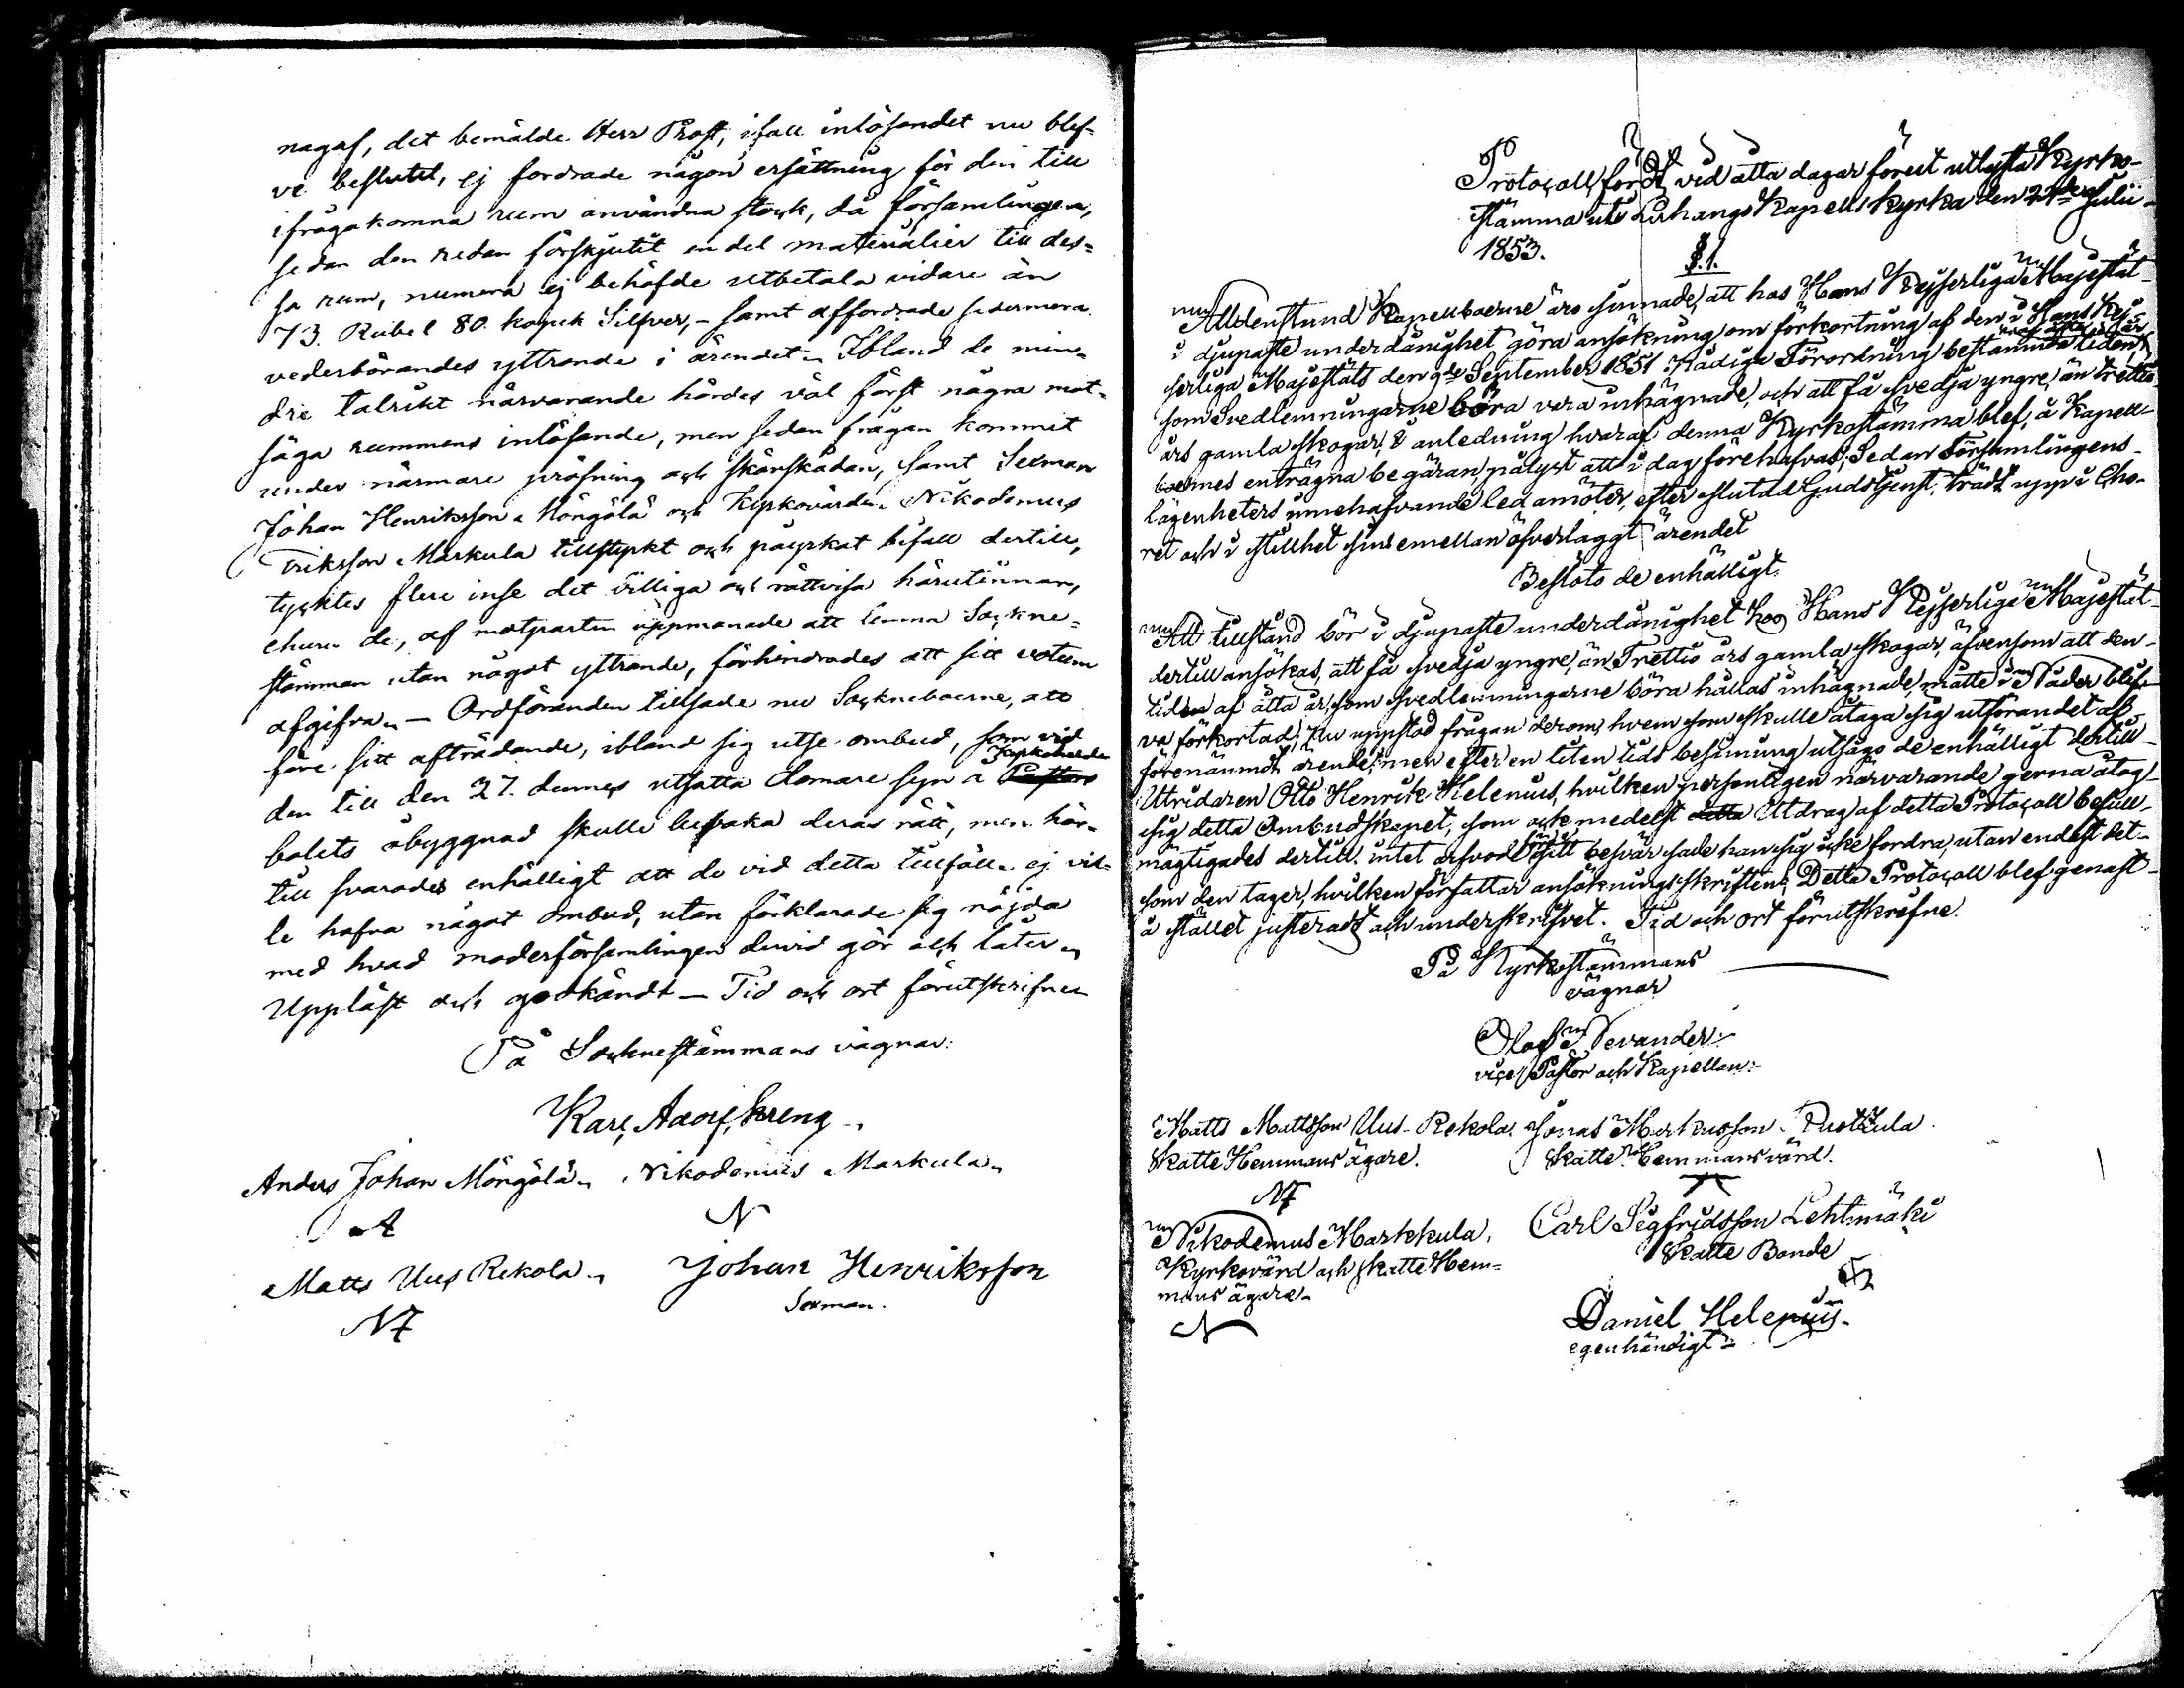 nagaf, det bemälde Herr Prost, ifall inlösandet nu blef-
ve beslutit, ej fordrade någon ersättning för den till
ifrågakomna rum användna stock, då församlingen,
sedan den redan förskjutit en del materialier till des-
sa rum, numera ej behöfde utbetala vidare än
73. Rubel 80. kopek Silfver, - samt affordrade sedermera
vederbörandes yttrande i ärendet. Ibland de min-
dre talrikt närvarande hördes väl först några mot-
säga rummens inlösande, men sedan frågan kommit
under närmare pröfning och skärskådan, samt Sexman
Johan Henriksson Möngölä och Kyrkovärden Nikodemus
Eriksson Markula tillstyrkt och påyrkat bifall dertill,
tycktes flere inse det billiga och rättvisa härutinnan,
ehuru de, af motparten uppmanade att lemna Sockne-
stämman utan något yttrande, förhindrades att sitt votum
afgifva. - Ordföranden tillsade nu Socknboerne, att
före sitt afträdande, ibland sig utse ombud, som vid
den till den 27. dennes utsatta domare syn å Kapellans
bolets åbyggnad skulle bevaka deras rätt, men här-
till svarades enhälligt att de vid detta tillfälle ej vil-
le hafva något ombud, utan förklarade sig nöjda
med hvad moderförsamlingen dervid gör och låter.
Uppläst och godkändt - Tid och ort förutskrifne
På Socknestämmans vägnar:
Karl Adolf
Anders Johan Möngölä. Nikodemus Markula.
A N
Matts Uus Rekola. Johan Henriksson
Sexman.
Protocoll, fördt vid åtta dagar förut utlyst Kyrko-
stämma uti Lillkangs Kapells Kyrka den 24de Julii
1853.
§.1.
Alldenstund Kapellboerne äro sinnade, att hos Hans Kejserliga Majestät
i djupaste underdånighet göra ansökning om förkortning af den i Hans Kej-
serliga Majestäts den 9de September 1851 Nådige Förordning bestämda tiden,
som Svedlemningarne böra vara inhägnade, och att få svedja yngre, än trettio
års gamla skogar, i anledning hvaraf denna Kyrkostämma blef, å Kapell-
boernes enträgna begäran, pålyst att i dag förehafvas; Sedan Församlingens
lägenheters innehafvande ledamöter, efter slutad Gudstjenst, trädt upp i Cho-
ret och i stillhet sins emellan öfverlaggt ärendet
Beslöts de enhälligt:
Att tillstånd bör i djupaste underdånighet hos Hans Kejserliga Majestät
dertill ansökas, att få svedja yngre, än Trettio års gamla skogar, äfvensom att den
tiden af åtta år, som svedlemningarne böra hållas inhägnade, måtte i Nåder blif-
va förkortad; Nu uppstod frågan derom, hvem som skulle åtaga sig utförandet af
förenämndt ärende, men efter en liten tids besinning utsågs de enhälligt dertill
Utridaren Otto Henrik Helenius, hvilken personligen närvarande gerna åtog
sig detta Ombudskapet, som ock medelst Utdrag af detta Protocoll befull-
mägtigades dertill. intet arfvod för sitt besvär sade han sig icke fordra, utan endast det
som den tager, hvilken författar ansökningsskriften; Detta Protocoll blef genast
å stället justeradt och underskrifvet. Tid och ort förutskrefne.
På Kyrkostämmans
vägnar
Olof Nevander
vice Pastor och Kapellan:
Matts Mattsson Uus-Rekola. Jonas Markusson Ruokkula.
Skatte Hemmans ägare. Skatte Hemmans värd.
Nikodemus Markkula, Carl Sigfridsson Lehtimäki
Kyrkovärd och Skatte Hem- Skatte Bonde
mans ägare.
N Daniel Helenius
egenhändigt